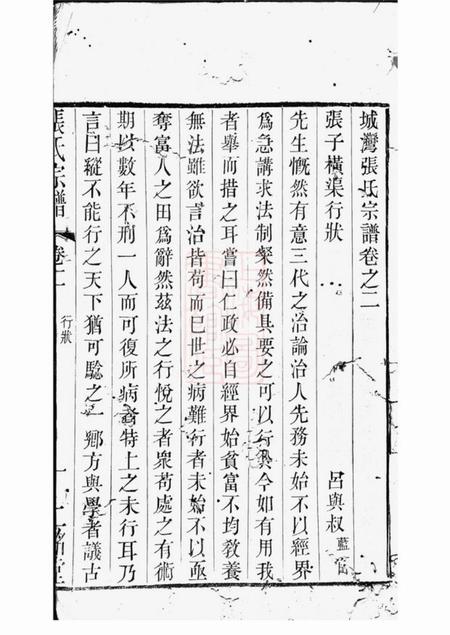 城灣張氏宗譜卷之二
張子橫渠行狀
呂與叔 藍官
先生慨然有意三代之治論治人先務未始不以經界
為急講求法制粲然備具要之可以行於今如有用我
者舉而措之耳嘗曰仁政必自經界始貧富不均敎養
無法雖欲言治皆苟而已世之病難行者未始不以亟
奪富人之田為辭然茲法之行悅之者衆苟處之有術
期以數年不刑一人而可復所病者特上之未行耳乃
言曰縱不能行之天下猶可驗之一鄉方與學者議古
張氏宗譜 卷二 行狀 一